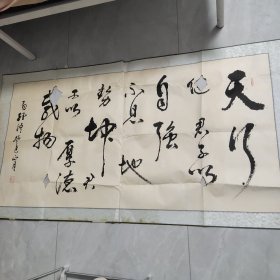 天行
健君子以
自強
不息地
勢坤君
子以厚德
載物